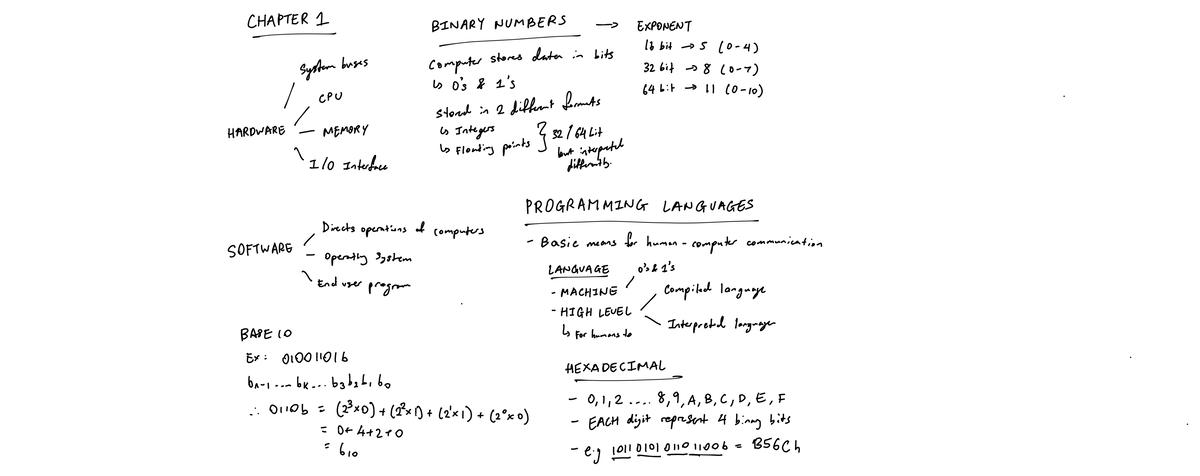 CHAPTER 1
System buses
CPU
HARDWARE
MEMORY
I/O Interface
BINARY NUMBERS → EXPONENT
Computer stores data in bits
↳ 0's & 1's
Stored in 2 different formats
↳ Integers
↳ Floating points
} 32/64 bit
but interpreted
differently.
16 bit → 5 (0-4)
32 bit → 8 (0-7)
64 bit → 11 (0-10)
SOFTWARE
Directs operations of computers
Operating System
End user program
PROGRAMMING LANGUAGES
- Basic means for human-computer communication
LANGUAGE
0's & 1's
- MACHINE
- HIGH LEVEL
Compiled language
Interpreted language
↳ For humans to
BASE 10
Ex: 01001101b
bn-1 .... bk ... b3 b2 b1 b0
∴ 0110b = (2³×0) + (2²×1) + (2¹×1) + (2⁰×0)
= 0+4+2+0
= 6₁₀
HEXADECIMAL
- 0,1,2 .... 8,9,A,B,C,D,E,F
- EACH digit represent 4 binary bits
- e.g 1011 0101 0110 1100b = B56Ch